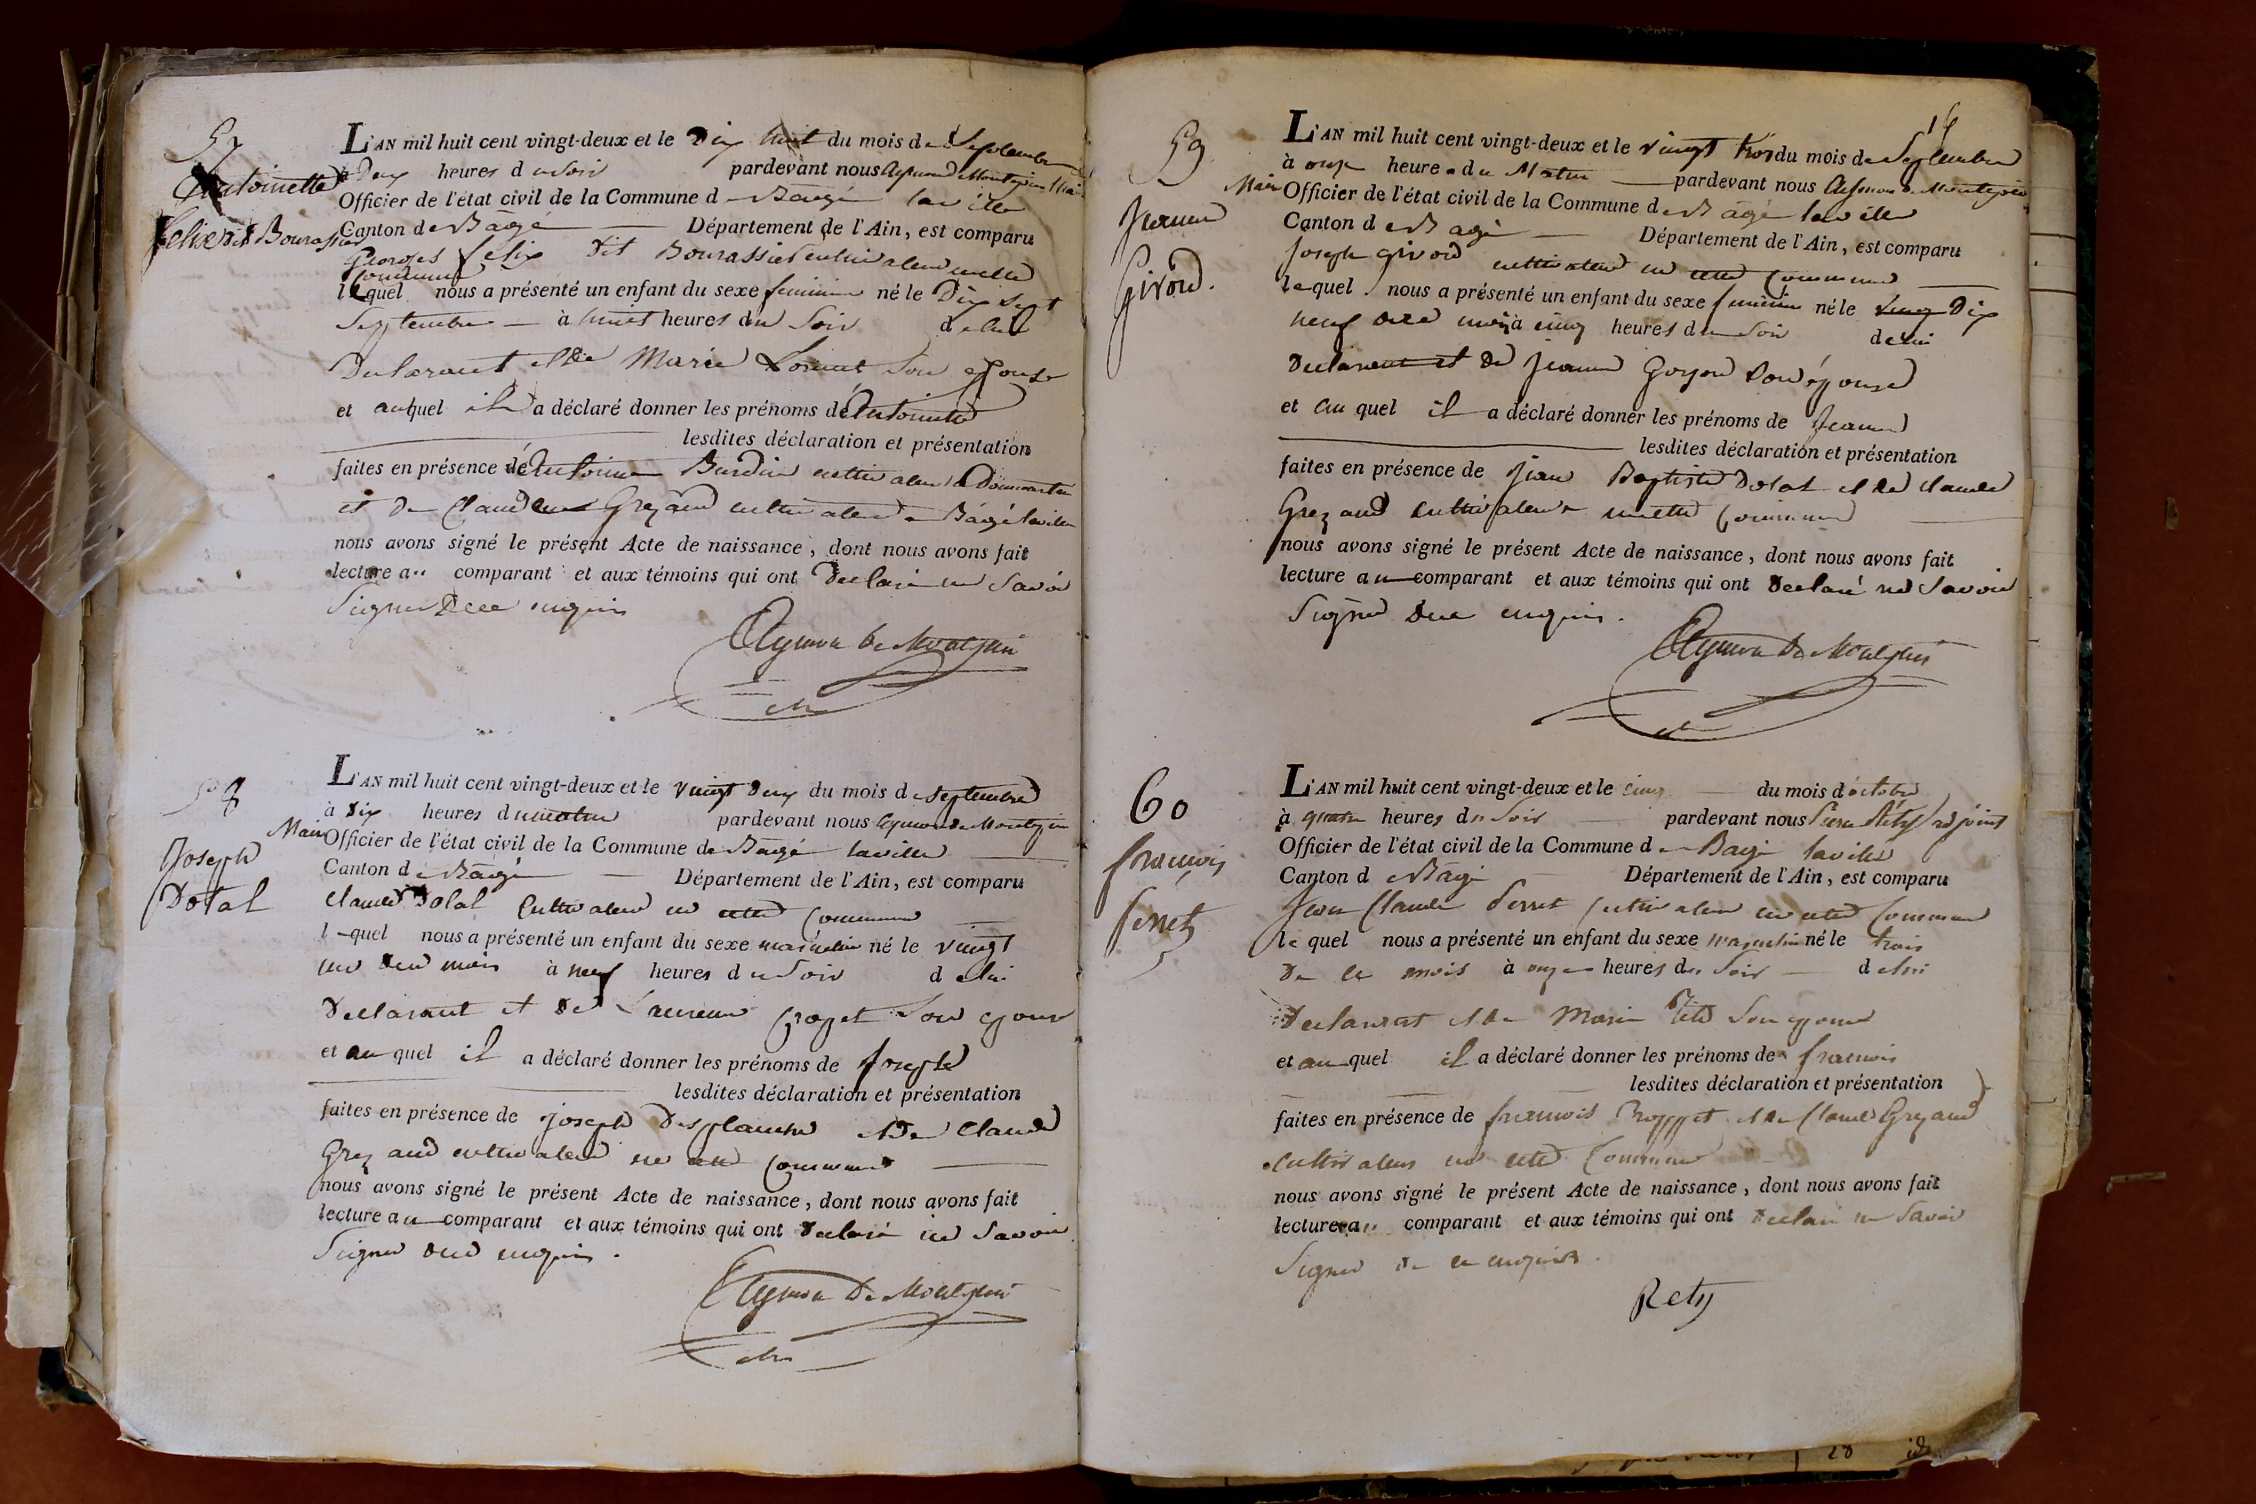 57
Antoinette
Felix dit Bourassier
L'AN mil huit cent vingt-deux et le Dix huit du mois de Septembre
à Deux heures du soir pardevant nous Aymon de Montépin Maire
Officier de l'état civil de la Commune de Bâgé la ville
Canton de Bâgé Département de l'Ain, est comparu
Georges felix dit Bourassier cultivateur en cette
commune
lequel nous a présenté un enfant du sexe feminin né le Dix sept
Septembre à huit heures du Soir de lui
Declarant et de Marie son epouse
et auquel il a déclaré donner les prénoms de Antoinette
lesdites déclaration et présentation
faites en présence de Antoine Burdin cultivateur à Dommartin
et de Claude Grezaud cultivateur a Bâgé laville
nous avons signé le présent Acte de naissance, dont nous avons fait
lecture au comparant et aux témoins qui ont Declaré ne Savoir
Signer De ce enquis
Aymon de Montépin
58
Joseph
Dolat
L'AN mil huit cent vingt-deux et le vingt deux du mois de Septembre
à Dix heures du matin pardevant nous Aymon de Montépin
Maire Officier de l'état civil de la Commune de Bâgé laville
Canton de Bâgé Département de l'Ain, est comparu
Claude Dolat Cultivateur en cette Commune
lequel nous a présenté un enfant du sexe masculin né le vingt
un du mois à neuf heures du Soir de lui
Declarant et de Laurence Son epouse
et au quel il a déclaré donner les prénoms de Joseph
lesdites déclaration et présentation
faites en présence de joseph Desplanche et de Claude
Grezaud cultivateur en cette Commune
nous avons signé le présent Acte de naissance, dont nous avons fait
lecture au comparant et aux témoins qui ont Declaré ne Savoir
Signer de ce enquis.
Aymon De Montépin
14
59
Jeanne
Givord.
L'AN mil huit cent vingt-deux et le vingt trois du mois de Septembre
à onze heures du Matin pardevant nous Aymon de Montépin
Maire Officier de l'état civil de la Commune de Bâgé laville
Canton de Bagé Département de l'Ain, est comparu
Joseph Givord cultivateur en cette Commune
lequel nous a présenté un enfant du sexe feminin né le Dix
neuf de ce mois à cinq heures du Soir de lui
Declarant et de Jeanne Goyon Son épouse
et au quel il a déclaré donner les prénoms de Jeanne
lesdites déclaration et présentation
faites en présence de Jean Baptiste Dolat et de Claude
Grezaud Cultivateur en cette Commune
nous avons signé le présent Acte de naissance, dont nous avons fait
lecture au comparant et aux témoins qui ont Declaré ne Savoir
Signer de ce enquis.
Aymon De Montépin
60
francois
ferret
L'AN mil huit cent vingt-deux et le cinq du mois d'octobre
à quatre heures du Soir pardevant nous Pierre Réty adjoint
Officier de l'état civil de la Commune de Bagé laville
Canton de Bâgé Département de l'Ain, est comparu
Jean Claude ferret Cultivateur en cette Commune
le quel nous a présenté un enfant du sexe masculin né le trois
De ce mois à onze heures du Soir de lui
Declarant et de Marie Son epouse
et au quel il a déclaré donner les prénoms de francois
lesdites déclaration et présentation
faites en présence de francois et de Claude Grezaud
cultivateurs en cette Commune
nous avons signé le présent Acte de naissance, dont nous avons fait
lecture au comparant et aux témoins qui ont Declaré ne Savoir
Signer de ce enquis.
Rety
28